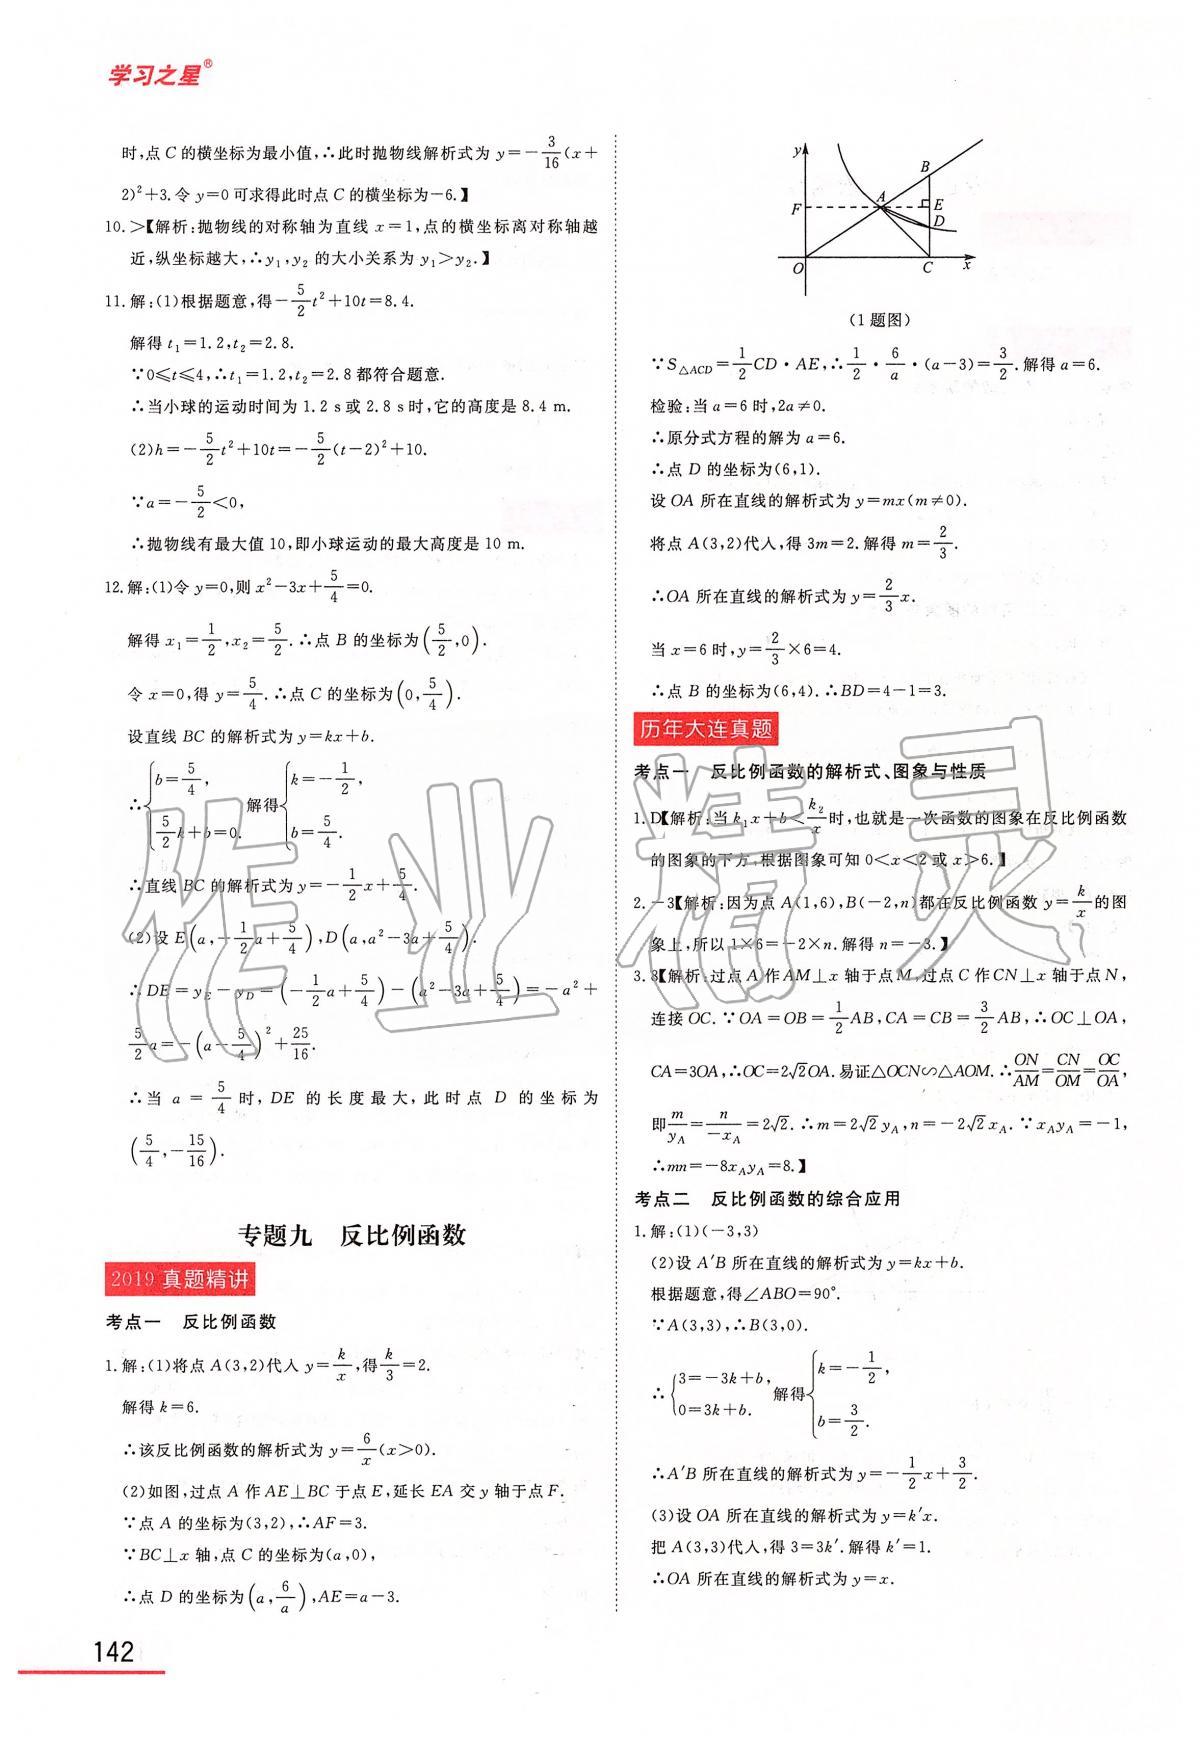 学习之星®
时,点 C 的横坐标为最小值,∴此时抛物线解析式为 y=-3/16(x+
2)²+3.令 y=0 可求得此时点 C 的横坐标为-6.】
10.>【解析:抛物线的对称轴为直线 x=1,点的横坐标离对称轴越
近,纵坐标越大,∴y₁,y₂ 的大小关系为 y₁>y₂.】
11.解:(1)根据题意,得-5/2t²+10t=8.4.
解得 t₁=1.2,t₂=2.8.
∵0≤t≤4,∴t₁=1.2,t₂=2.8 都符合题意.
∴当小球的运动时间为 1.2 s或 2.8 s时,它的高度是 8.4 m.
(2)h=-5/2t²+10t=-5/2(t-2)²+10.
∵a=-5/2<0,
∴抛物线有最大值 10,即小球运动的最大高度是 10 m.
12.解:(1)令 y=0,则 x²-3x+5/4=0.
解得 x₁=1/2,x₂=5/2.∴点 B 的坐标为(5/2,0).
令 x=0,得 y=5/4.∴点 C 的坐标为(0,5/4).
设直线 BC 的解析式为 y=kx+b.
∴{b=5/4, 5/2k+b=0. 解得{k=-1/2, b=5/4.
∴直线 BC 的解析式为 y=-1/2x+5/4.
(2)设 E(a,-1/2a+5/4),D(a,a²-3a+5/4).
∴DE=y_E-y_D=(-1/2a+5/4)-(a²-3a+5/4)=-a²+
5/2a=-(a-5/4)²+25/16.
∴当 a=5/4 时,DE 的长度最大,此时点 D 的坐标为
(5/4,-15/16).
专题九 反比例函数
2019 真题精讲
考点一 反比例函数
1.解:(1)将点 A(3,2)代入 y=k/x,得k/3=2.
解得 k=6.
∴该反比例函数的解析式为 y=6/x(x>0).
(2)如图,过点 A 作 AE⊥BC 于点 E,延长 EA 交 y 轴于点 F.
∵点 A 的坐标为(3,2),∴AF=3.
∵BC⊥x 轴,点 C 的坐标为(a,0),
∴点 D 的坐标为(a,6/a),AE=a-3.
142
y
B
A
F
E
D
O
C
x
(1 题图)
∵S△ACD=1/2CD·AE,∴1/2·6/a·(a-3)=3/2.解得 a=6.
检验:当 a=6 时,2a≠0.
∴原分式方程的解为 a=6.
∴点 D 的坐标为(6,1).
设 OA 所在直线的解析式为 y=mx(m≠0).
将点 A(3,2)代入,得 3m=2.解得 m=2/3.
∴OA 所在直线的解析式为 y=2/3x.
当 x=6 时,y=2/3×6=4.
∴点 B 的坐标为(6,4).∴BD=4-1=3.
历年大连真题
考点一 反比例函数的解析式、图象与性质
1.D【解析:当 k₁x+b<k₂/x时,也就是一次函数的图象在反比例函数
的图象的下方,根据图象可知 0<x<2 或 x>6.】
2.-3【解析:因为点 A(1,6),B(-2,n)都在反比例函数 y=k/x的图
象上,所以 1×6=-2×n.解得 n=-3.】
3.8【解析:过点 A 作 AM⊥x 轴于点 M,过点 C 作 CN⊥x 轴于点 N,
连接 OC.∵OA=OB=1/2AB,CA=CB=3/2AB,∴OC⊥OA,
CA=3OA,∴OC=2√2OA.易证△OCN∽△AOM.∴ON/AM=CN/OM=OC/OA,
即m/y_A=n/-x_A=2√2.∴m=2√2y_A,n=-2√2x_A.∵x_Ay_A=-1,
∴mn=-8x_Ay_A=8.】
考点二 反比例函数的综合应用
1.解:(1)(-3,3)
(2)设 A′B 所在直线的解析式为 y=kx+b.
根据题意,得∠ABO=90°.
∵A(3,3),∴B(3,0).
∴{3=-3k+b, 0=3k+b. 解得{k=-1/2, b=3/2.
∴A′B 所在直线的解析式为 y=-1/2x+3/2.
(3)设 OA 所在直线的解析式为 y=k′x.
把 A(3,3)代入,得 3=3k′.解得 k′=1.
∴OA 所在直线的解析式为 y=x.
作业精灵